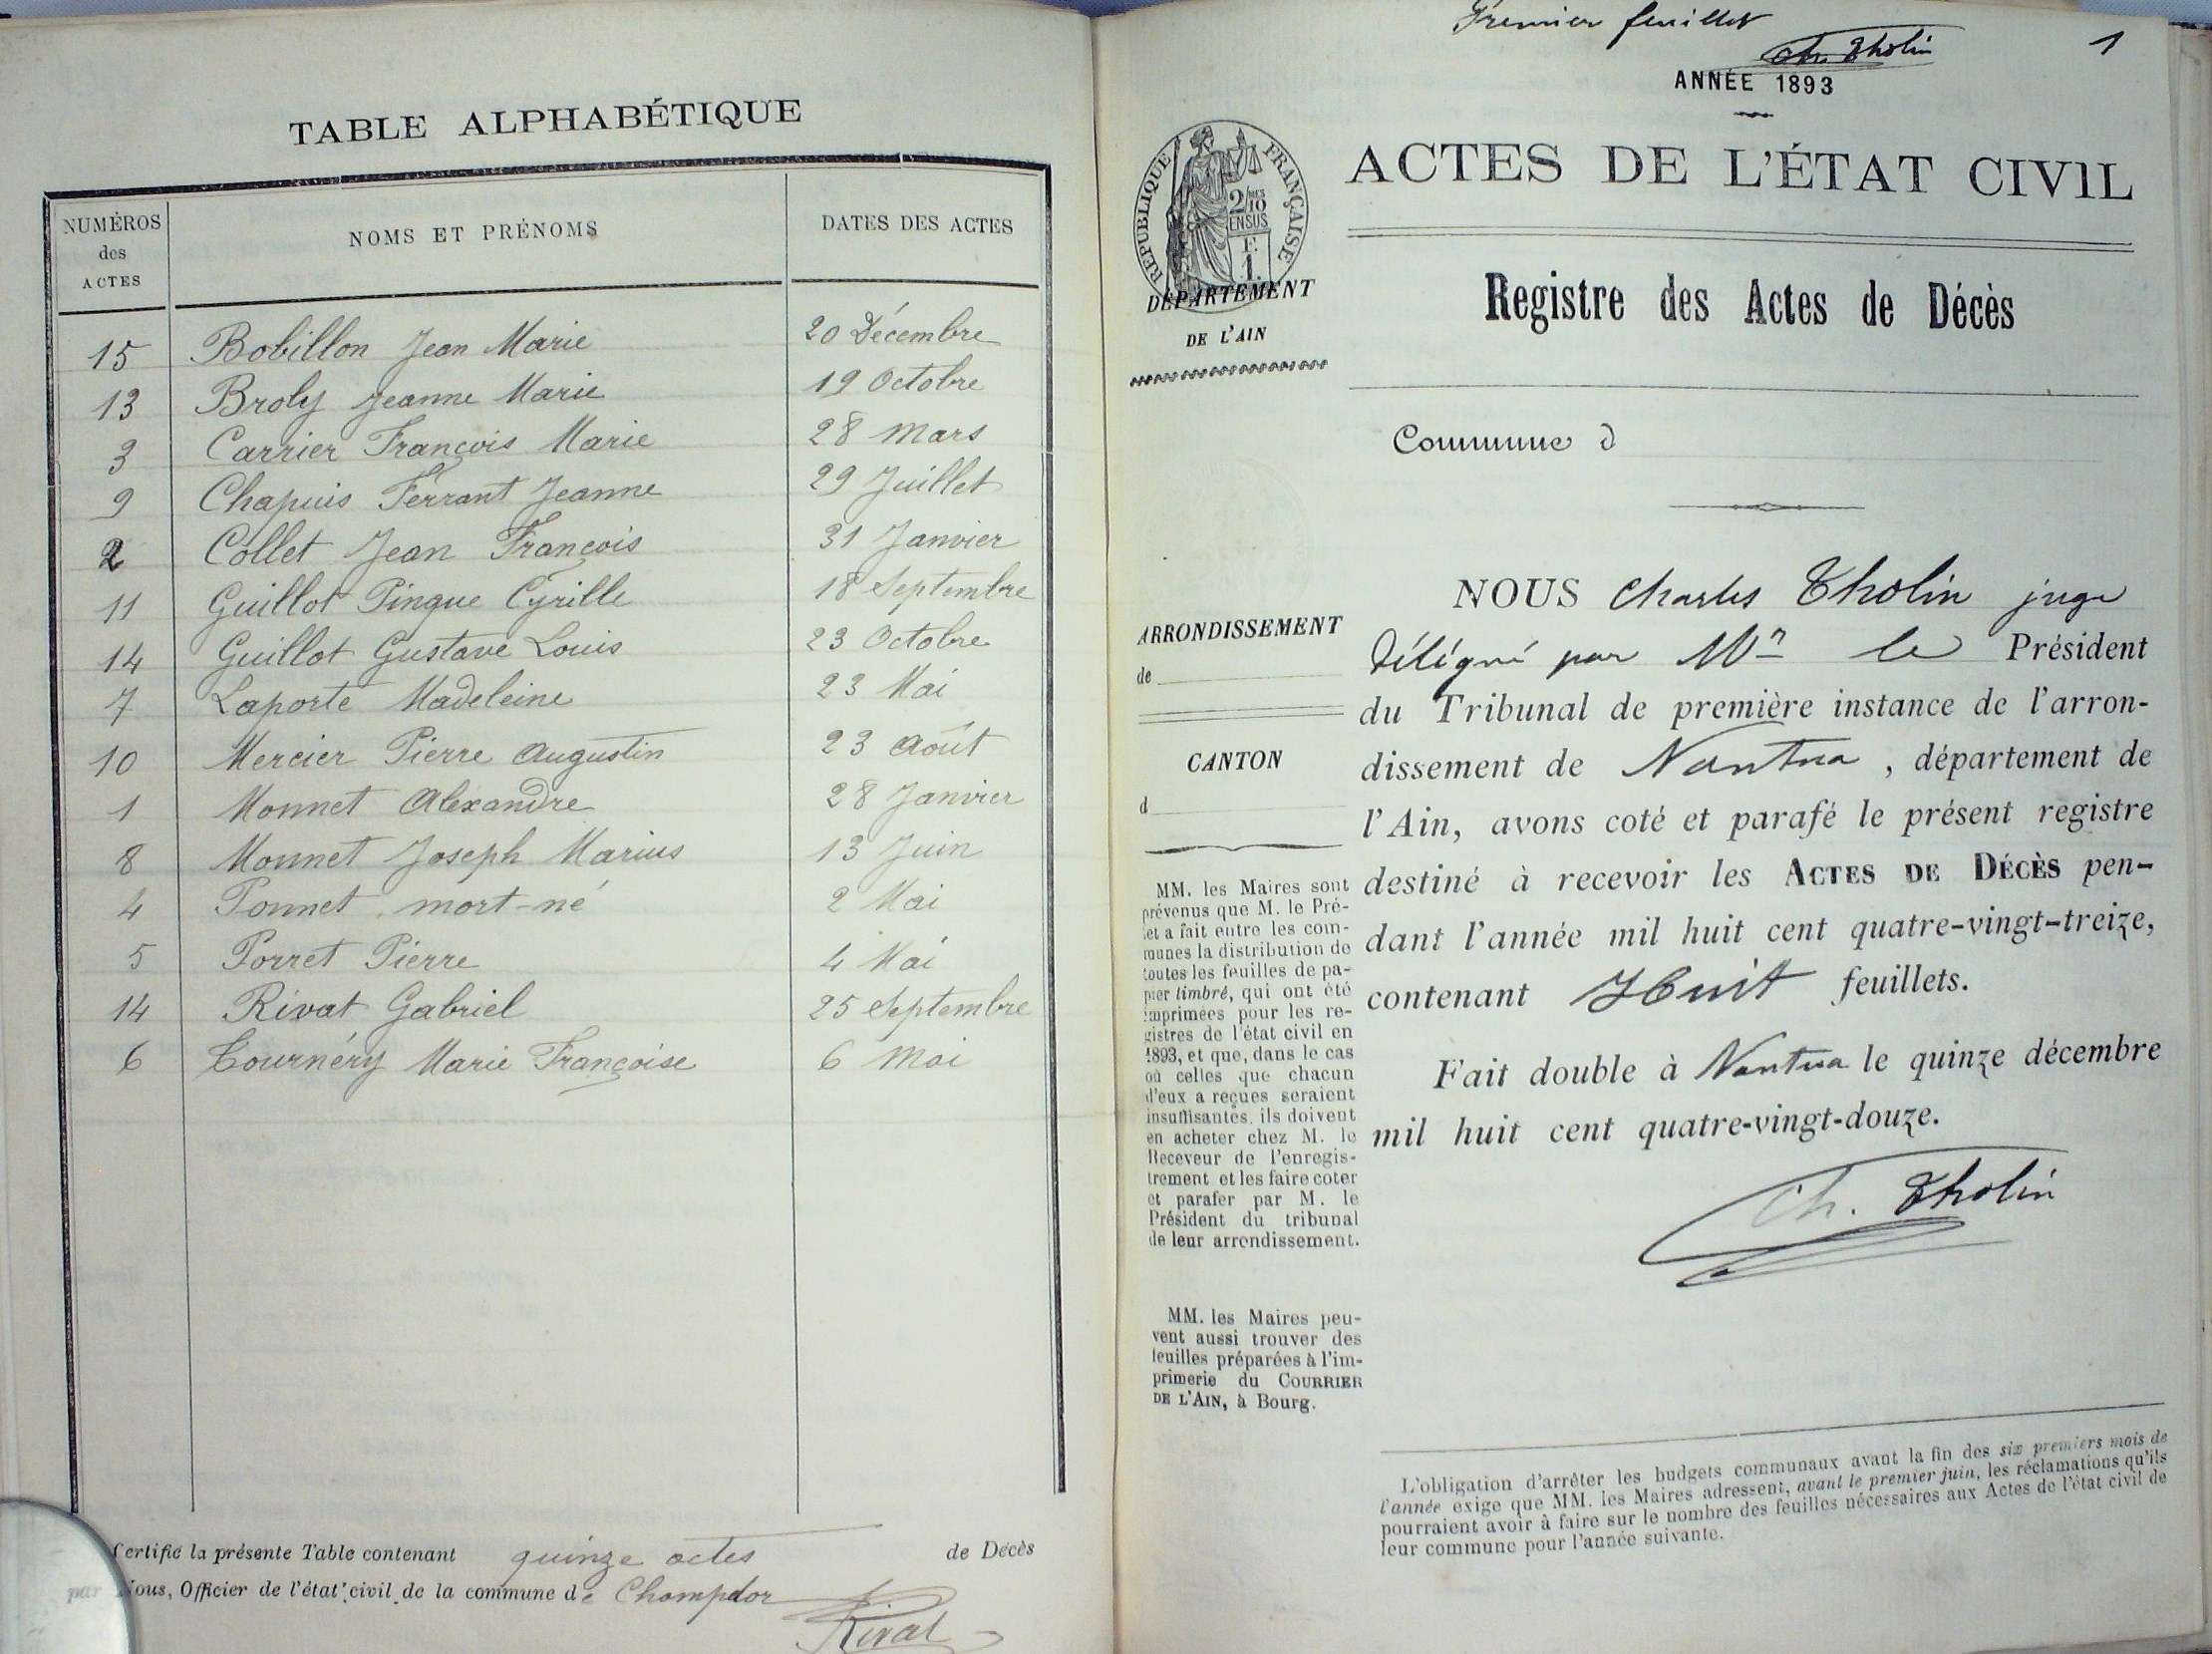 TABLE ALPHABÉTIQUE
NUMÉROS des ACTES NOMS ET PRÉNOMS DATES DES ACTES
15 Bobillon Jean Marie 20 Décembre
13 Broly Jeanne Marie 19 Octobre
3 Carrier François Marie 28 Mars
9 Chapuis Ferrant Jeanne 29 Juillet
2 Collet Jean François 31 Janvier
11 Guillot Pingue Cyrille 18 Septembre
14 Guillot Gustave Louis 23 Octobre
7 Laporte Madeleine 23 Mai
10 Mercier Pierre Augustin 23 Août
1 Monnet Alexandre 28 Janvier
8 Monnet Joseph Marius 13 Juin
4 Ponnet mort-né 2 Mai
5 Porret Pierre 4 Mai
14 Rivat Gabriel 25 Septembre
6 Tournéry Marie Françoise 6 Mai
Certifié la présente Table contenant quinze actes de Décès
par Nous, Officier de l'état civil de la commune de Champdor
Rivat
Premier feuillet
Ch. Tholin
1
ANNÉE 1893
RÉPUBLIQUE FRANÇAISE
2/10 EN SUS
F. 1.
ACTES DE L'ÉTAT CIVIL
DÉPARTEMENT
DE L'AIN
Registre des Actes de Décès
Commune d
ARRONDISSEMENT
de
CANTON
d
MM. les Maires sont
prévenus que M. le Pré-
fet a fait entre les com-
munes la distribution de
toutes les feuilles de pa-
pier timbré, qui ont été
imprimées pour les re-
gistres de l'état civil en
1893, et que, dans le cas
où celles que chacun
d'eux a reçues seraient
insuffisantes, ils doivent
en acheter chez M. le
Receveur de l'enregis-
trement et les faire coter
et parafer par M. le
Président du tribunal
de leur arrondissement.
MM. les Maires peu-
vent aussi trouver des
feuilles préparées à l'im-
primerie du COURRIER
DE L'AIN, à Bourg.
NOUS Charles Tholin juge
délégué par Mr le Président
du Tribunal de première instance de l'arron-
dissement de Nantua, département de
l'Ain, avons coté et parafé le présent registre
destiné à recevoir les ACTES DE DÉCÈS pen-
dant l'année mil huit cent quatre-vingt-treize,
contenant Huit feuillets.
Fait double à Nantua le quinze décembre
mil huit cent quatre-vingt-douze.
Ch. Tholin
L'obligation d'arrêter les budgets communaux avant la fin des six premiers mois de
l'année exige que MM. les Maires adressent, avant le premier juin, les réclamations qu'ils
pourraient avoir à faire sur le nombre des feuilles nécessaires aux Actes de l'état civil de
leur commune pour l'année suivante.